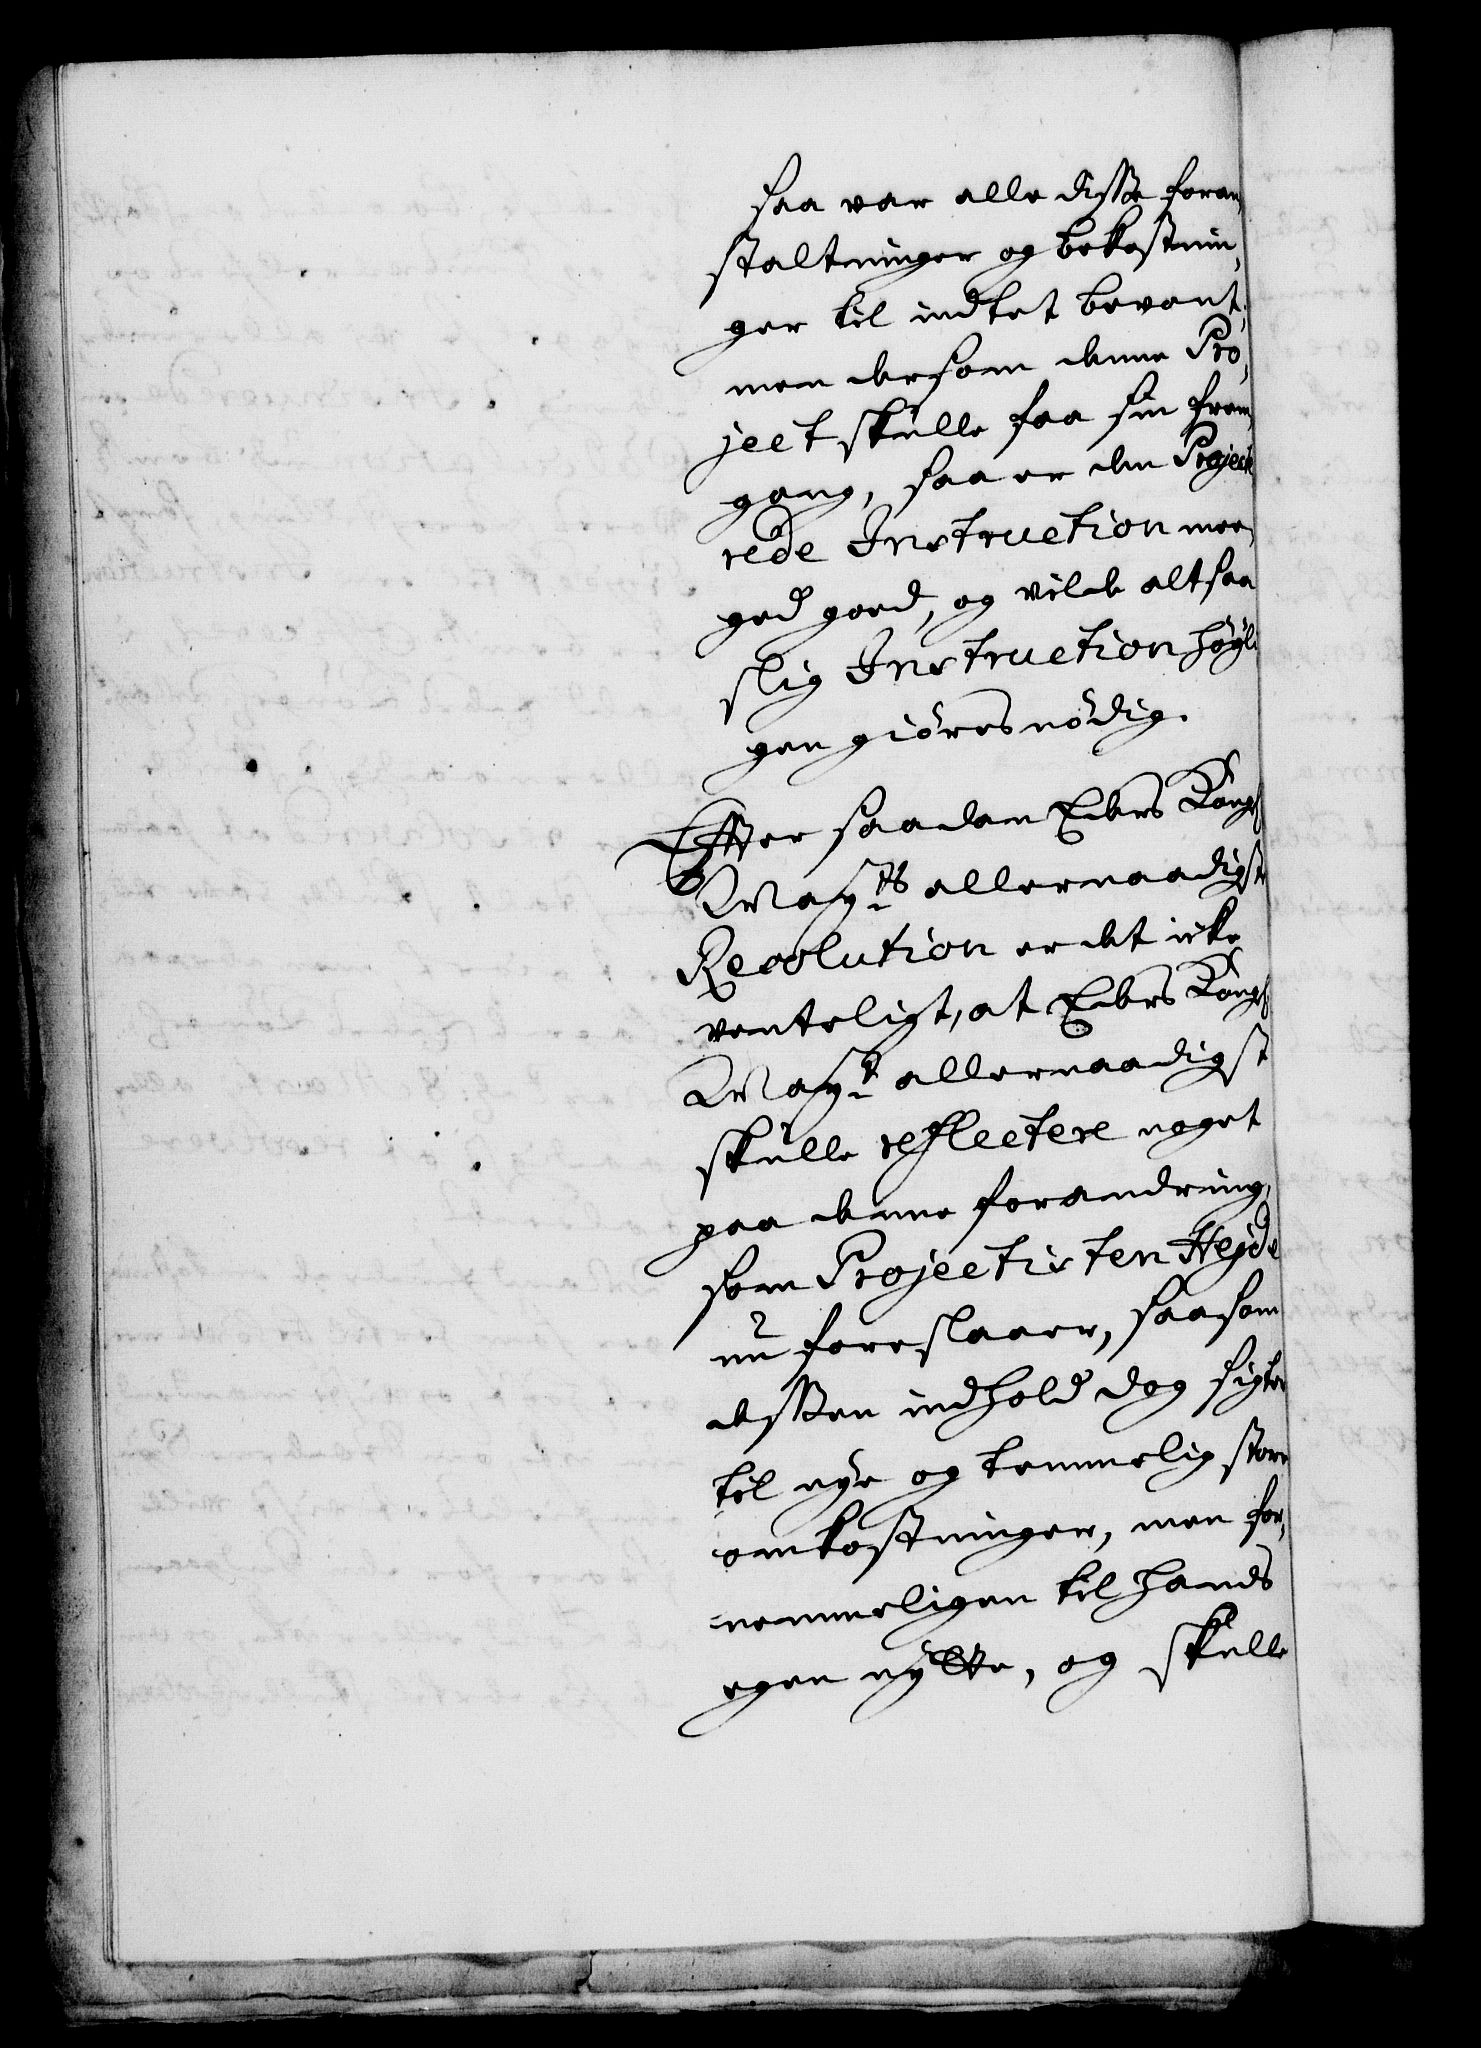 saa var alle disse foran,
staltninger og bekostnin,
ger til indtet bevant,
men dersom denne Pro,
ject skulle faa sin frem,
gang, saa er den Projecte
rede Instruction mee,
ged goed, og vilde altsaa
slig Instruction högli
gen giöres nödig.
Effter saadan Eders Kongl
Mayts allernaadigste
Resolution er det icke
venteligt, at Eders Kongl
Mayt allernaadigst
skulle reflectere noget
paa denne forandring,
som Projectisten Heyde
nu foreslaaer, saasom
dessen indhold dog sigter
til nye og temmelig store
omkostninger, men for,
nemmeligen til hands
egen nÿtte, og skulle